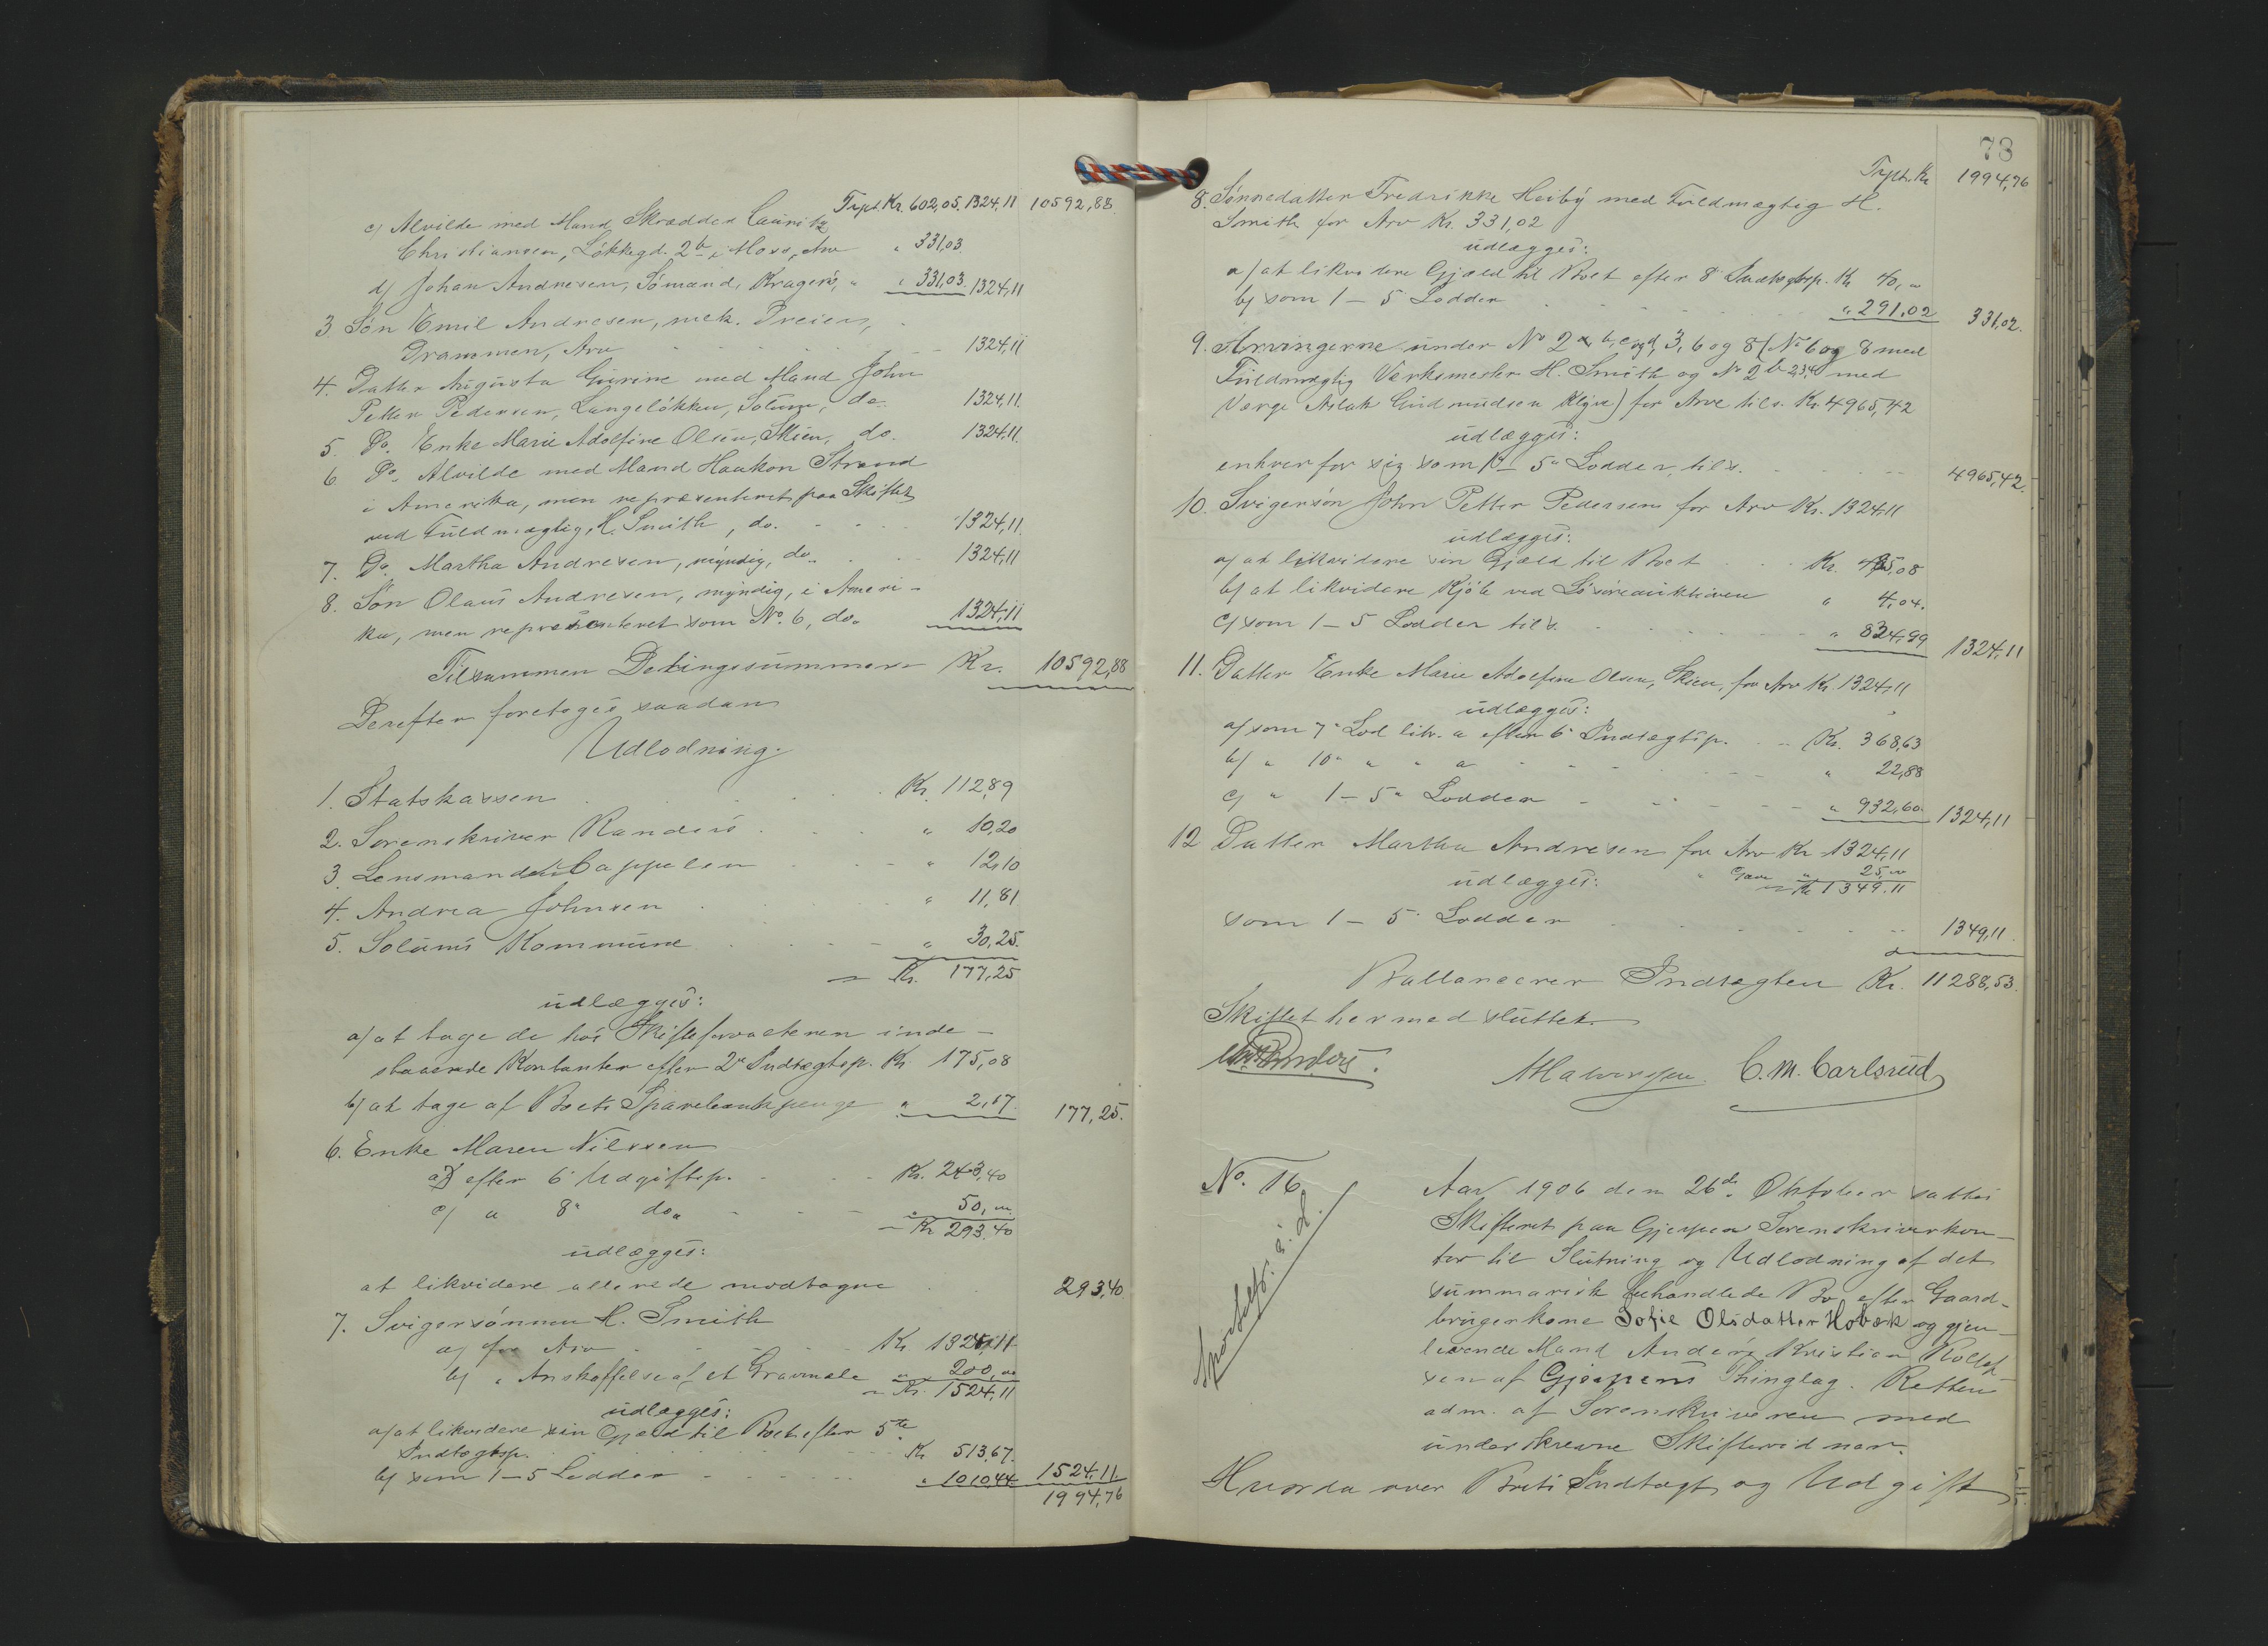 Trpt. Kr. 602,05. 1324,11 10592,88.
c/ Alvilde med Mand Skrædder Lauritz
Christiansen, Løkkegd. 2b i Moss, Arv " 331,03.
d/ Johan Andresen, Sømand, Kragerø, " " 331,03. 1324,11
3 Søn Emil Andresen, mek. Dreier,
Drammen, Arv 1324,11
4. Datter Augusta Gurine med Mand John
Petter Pedersen, Langeløkken, Solum, do. 1324,11.
5. Do. Enke Marie Adolfine Olsen, Skien, do. 1324,11.
6 Do. Alvilde med Mand Haakon Strand
i Amerika, men repræsenteret paa Skiftet
ved Fuldmægtig, H. Smith, do. 1324,11.
7. Do. Martha Andresen, myndig, do. 1324,11
8. Søn Olaus Andresen, myndig, i Ameri-
ka, men repræsenteret som No. 6, do. 1324,11
Tilsammen Delingssummen Kr. 10592,88
Derefter foretoges saadan
Udlodning.
1. Statskassen Kr. 112,89
2. Sorenskriver Randers " 10,20
3. Lensmand Cappelen " 12,10
4. Andrea Johnsen " 11,81
5. Solums Kommune " 30,25.
= Kr. 177,25
udlægges:
a/ at tage de hos Skifteforvalteren inde-
staaende Kontanter efter 2n Indtægtsp. Kr. 175,08
b/ at tage af Boets Sparebankpenge " 2,17. 177,25.
6. Enke Maren Nilssen
a/ efter 6' Udgiftsp. Kr. 243,40
c/ " 8" do. " 50,00
= Kr 293,40
udlægges:
at likvidere allerede modtagne 293,40
7. Svigersønnen H. Smith
a/ for Arv Kr. 1324,11
b/ " Anskaffelse af et Gravmæle " 200,00
= Kr. 1524,11
udlægges:
a/ at likvidere sin Gjæld til Boet efter 5te
Indtægtsp. Kr 513,67.
b/ som 1-5 Lodder " 1010,44 1524,11.
1994,76
73
Trpt. Kr 1994,76
8. Sønnedatter Fredrikke Heiby med Fuldmægtig H.
Smith for Arv Kr. 331,02
udlægges:
a/ at likvidere Gjæld til Boet efter 8' Indtægtsp. Kr 40,"
b/ som 1-5 Lodder " 291,02 331,02.
9. Arvingerne under No 2 a, b, c og d, 3, 6 og 8 (No 6 og 8 med
Fuldmægtig Værksmester H. Smith og No 2 med
Værge Aslak Gudmudsen Klyve) for Arve tils. Kr. 4965,42
udlægges:
enhver for sig som 1-5" Lodder, tils. 4965,42.
10. Svigersøn John Petter Pedersen for Arv Kr. 1324,11
udlægges:
a/ at likvidere sin Gjæld til Boet Kr. 495,08
b/ at likvidere Kjøb ved Løsøreauktionen " 4,04.
c/ som 1-5 Lodder tils. " 824,99 1324,11
11. Datter Enke Marie Adolfine Olsen, Skien, for Arv Kr. 1324,11
udlægges:
a/ som 7' Lod litr. a efter 6' Indtægtsp. Kr. 368,63
b/ " 10" " " a " 22,88
c/ " 1-5" Lodder " 932,60 1324,11
12 Datter Martha Andresen for Arv Kr 1324,11
" Gave " 25,00
udlægges: = Kr 1349.11
som 1-5' Lodder 1349,11.
Ballancerer Indtægten Kr. 11288,53.
Skiftet hermed sluttet.
C. M. Carlsrud
No. 16
Aar 1906 den 26de Oktober sattes
Skifteret paa Gjerpen Sorenskriverkon-
tor til Slutning og Udlodning af det
summarisk behandlede Bo efter Gaard-
brugerkone Sofie Olsdatter Hobæk og gjen-
levende Mand Andérs Kristian Rollef-
sen af Gjerpens Thinglag. Retten
adm. af Sorenskriveren med
underskrevne Skiftevidner.
Hvorda over Boets Indtægt og Udgift